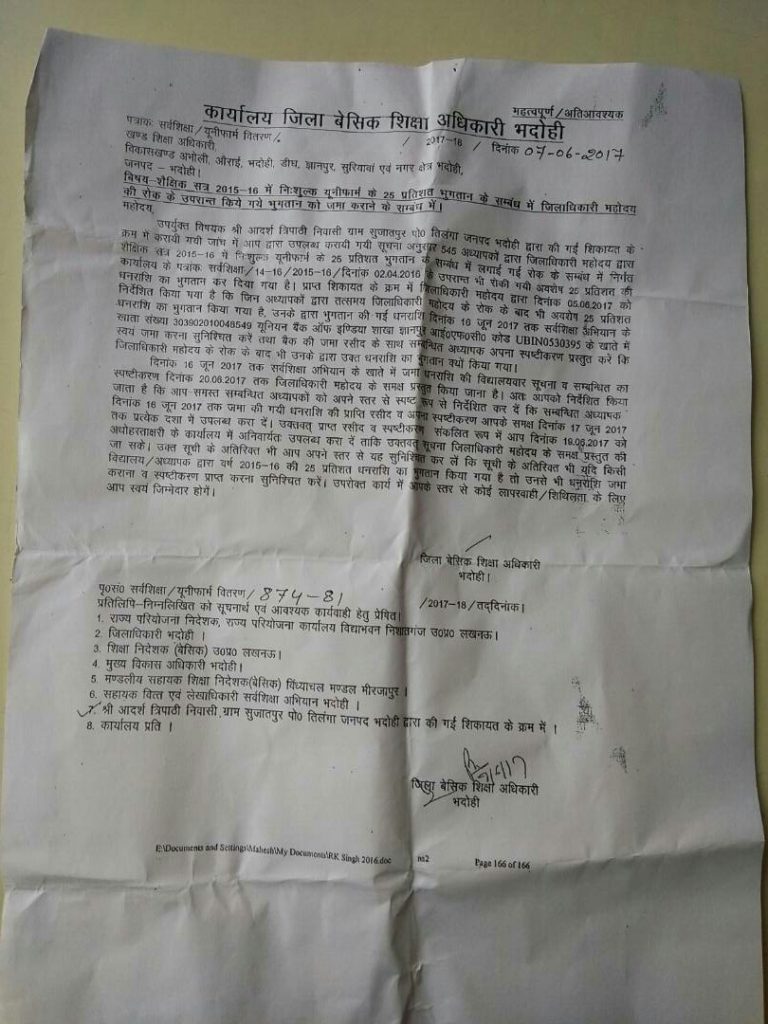 महत्वपूर्ण/अतिआवश्यक
कार्यालय जिला बेसिक शिक्षा अधिकारी भदोही
पत्रांकः सर्वशिक्षा/यूनीफार्म वितरण/. / 2017-18 / दिनांक 07-06-2017
खण्ड शिक्षा अधिकारी,
विकासखण्ड अभोली, औराई, भदोही, डीघ, ज्ञानपुर, सुरियावां एवं नगर क्षेत्र भदोही,
जनपद – भदोही।
विषय–शैक्षिक सत्र 2015-16 में निःशुल्क यूनीफार्म के 25 प्रतिशत भुगतान के सम्बंध में जिलाधिकारी महोदय
की रोक के उपरान्त किये गये भुगतान को जमा कराने के सम्बंध में।
महोदय,
उपर्युक्त विषयक श्री आदर्श त्रिपाठी निवासी ग्राम सुजातपुर पो0 तिलंगा जनपद भदोही द्वारा की गई शिकायत के
क्रम में करायी गयी जांच में आप द्वारा उपलब्ध करायी गयी सूचना अनुसार 545 अध्यापकों द्वारा जिलाधिकारी महोदय द्वारा
शैक्षिक सत्र 2015-16 में निःशुल्क यूनीफार्म के 25 प्रतिशत भुगतान के सम्बंध में लगाई गई रोक के सम्बंध में निर्गत
कार्यालय के पत्रांकः सर्वशिक्षा/14-16/2015-16/दिनांक 02.04.2016 के उपरान्त भी रोकी गयी अवशेष 25 प्रतिशत की
धनराशि का भुगतान कर दिया गया है। प्राप्त शिकायत के क्रम में जिलाधिकारी महोदय द्वारा दिनांक 05.06.2017 को
निर्देशित किया गया है कि जिन अध्यापकों द्वारा तत्समय जिलाधिकारी महोदय के रोक के बाद भी अवशेष 25 प्रतिशत
धनराशि का भुगतान किया गया है, उनके द्वारा भुगतान की गई धनराशि दिनांक 16 जून 2017 तक सर्वशिक्षा अभियान के
खाता संख्या 303902010048549 यूनियन बैंक ऑफ इण्डिया शाखा ज्ञानपुर आई0एफ0सी0 कोड UBIN0530395 के खाते में
स्वयं जमा करना सुनिश्चित करें तथा बैंक की जमा रसीद के साथ सम्बन्धित अध्यापक अपना स्पष्टीकरण प्रस्तुत करें कि
जिलाधिकारी महोदय के रोक के बाद भी उनके द्वारा उक्त धनराशि का भुगतान क्यों किया गया।
दिनांक 16 जून 2017 तक सर्वशिक्षा अभियान के खाते में जमा धनराशि की विद्यालयवार सूचना व सम्बन्धित का
स्पष्टीकरण दिनांक 20.06.2017 तक जिलाधिकारी महोदय के समक्ष प्रस्तुत किया जाना है। अतः आपको निर्देशित किया
जाता है कि आप समस्त सम्बन्धित अध्यापकों को अपने स्तर से स्पष्ट रूप से निर्देशित कर दें कि सम्बन्धित अध्यापक
दिनांक 16 जून 2017 तक जमा की गयी धनराशि की प्राप्ति रसीद व अपना स्पष्टीकरण आपके समक्ष दिनांक 17 जून 2017
तक प्रत्येक दशा में उपलब्ध करा दें। उक्तवत् प्राप्त रसीद व स्पष्टीकरण संकलित रूप में आप दिनांक 19.06.2017 को
अधोहस्ताक्षरी के कार्यालय में अनिवार्यतः उपलब्ध करा दें ताकि उक्तवत् सूचना जिलाधिकारी महोदय के समक्ष प्रस्तुत की
जा सके। उक्त सूची के अतिरिक्त भी आप अपने स्तर से यह सुनिश्चित कर लें कि सूची के अतिरिक्त भी यदि किसी
विद्यालय/अध्यापक द्वारा वर्ष 2015-16 की 25 प्रतिशत धनराशि का भुगतान किया गया है तो उनसे भी धनराशि जमा
कराना व स्पष्टीकरण प्राप्त करना सुनिश्चित करें। उपरोक्त कार्य में आपके स्तर से कोई लापरवाही/शिथिलता के लिए
आप स्वयं जिम्मेदार होगें।
जिला बेसिक शिक्षा अधिकारी
भदोही।
पृ0सं0 सर्वशिक्षा/यूनीफार्म वितरण/874-81 /2017-18/तद्दिनांक।
प्रतिलिपि–निम्नलिखित को सूचनार्थ एवं आवश्यक कार्यवाही हेतु प्रेषित।
1. राज्य परियोजना निदेशक, राज्य परियोजना कार्यालय विद्याभवन निशातगंज उ0प्र0 लखनऊ।
2. जिलाधिकारी भदोही ।
3. शिक्षा निदेशक (बेसिक) उ0प्र0 लखनऊ।
4. मुख्य विकास अधिकारी भदोही।
5. मण्डलीय सहायक शिक्षा निदेशक(बेसिक) विंध्याचल मण्डल मीरजापुर ।
6. सहायक वित्त एवं लेखाधिकारी सर्वशिक्षा अभियान भदोही ।
7. श्री आदर्श त्रिपाठी निवासी ग्राम सुजातपुर पो0 तिलंगा जनपद भदोही द्वारा की गई शिकायत के क्रम में ।
8. कार्यालय प्रति ।
जिला बेसिक शिक्षा अधिकारी
भदोही
E:\Documents and Settings\Mahesh\My Documents\RK Singh 2016.doc ns2 Page 166 of 166